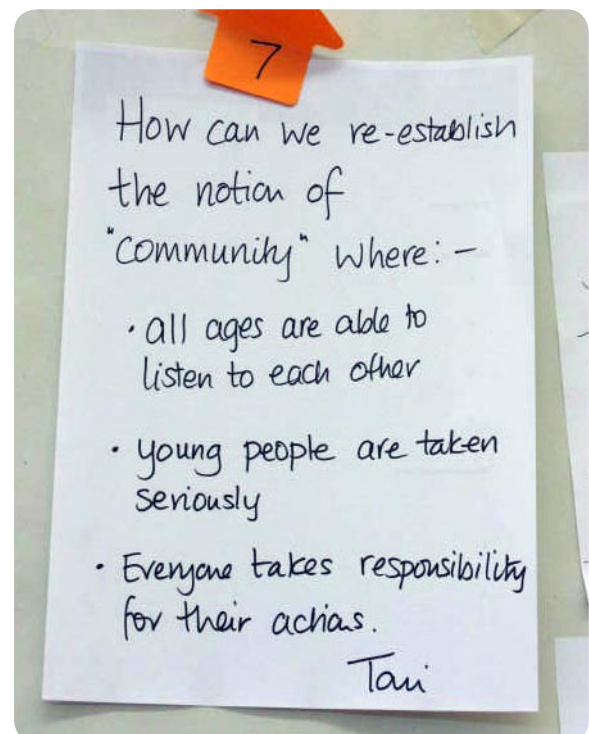 7
How can we re-establish
the notion of
"Community" where: -
· all ages are able to
listen to each other
· young people are taken
seriously
· Everyone takes responsibility
for their actions.